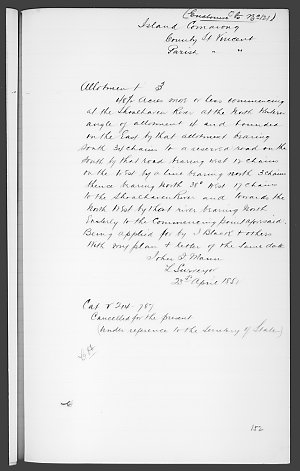 (Enclosure to 
Island Comarong
County St Vincent
Parish " "
Allotment 3
Acres more or less commencing
at the Shoalhaven River at the North Western
angle of allotment 4 and bounded
on the East by that allotment bearing
South 34 chains to a reserved road on the
South by that road bearing West 10 chains
on the West by a line bearing North 3 chains
thence bearing North 38° West 17 chains
to the Shoalhaven River and towards the
North West by that river bearing North
Easterly to the Commencing point aforesaid.
Being applied for by J Black & others
With your plan & letter of the same date
John F Mann
L Surveyor
23rd April 1851
Cat 
Cancelled for the present
(under reference to the Secretary of State)
152